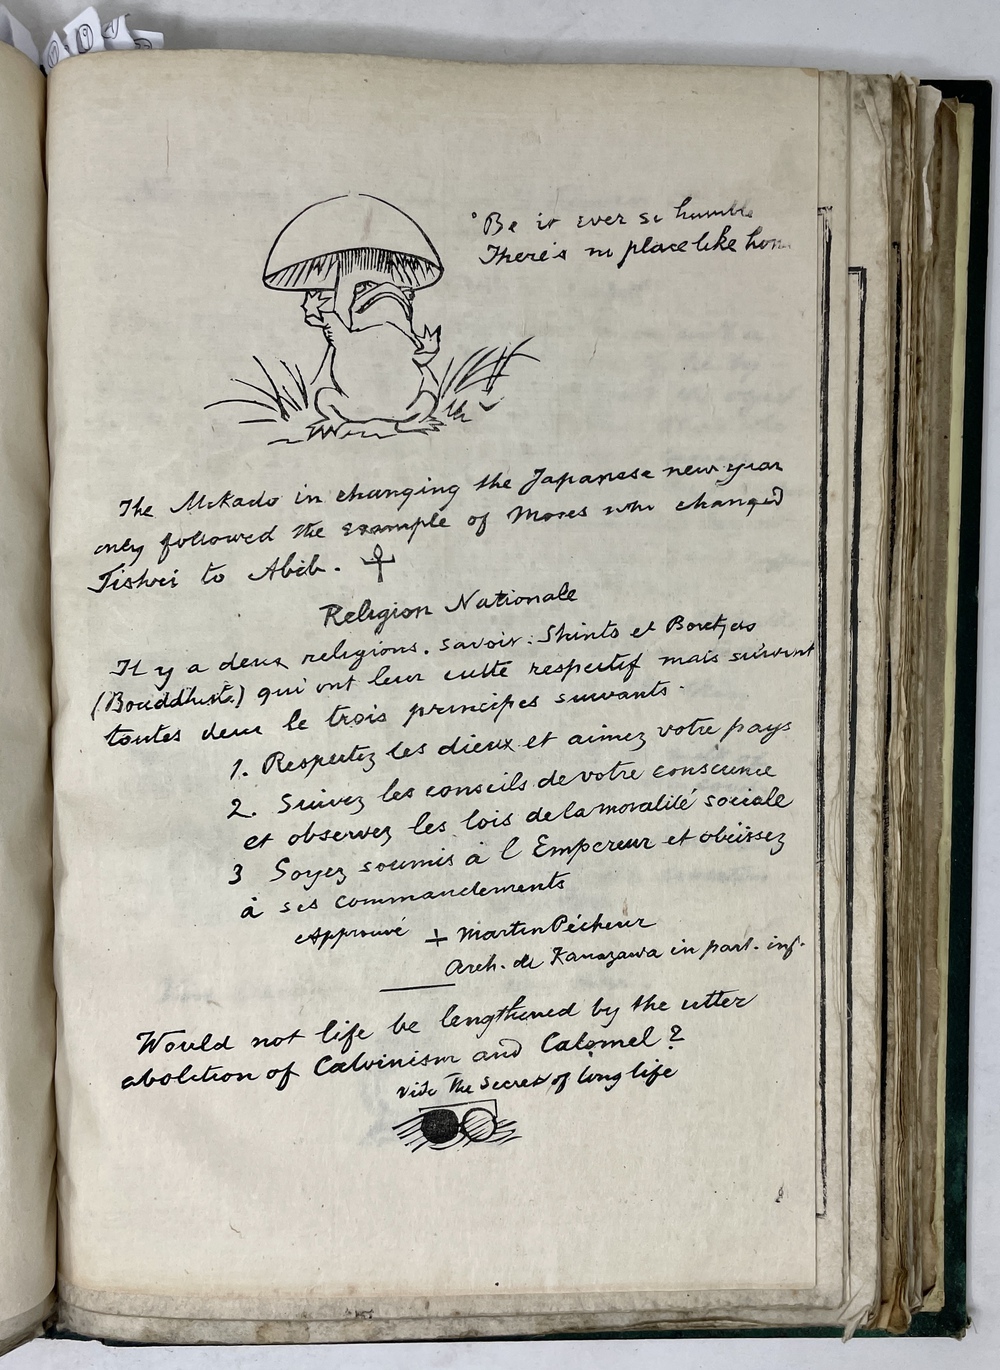 "Be it ever so humble
There's no place like hom
The Mikado in changing the Japanese new year
only followed the example of Moses who changed
Tishri to Abib.
Religion Nationale
Il y a deux religions. savoir: Shinto et
(Bouddhist.) qui ont leur culte respectif mais suivent
toutes deux le trois principes suivants.
1. Respectez les dieux et aimez votre pays
2. Suivez les conseils de votre conscience
et observez les lois de la moralité sociale
3 Soyez soumis à l Empereur et obeissez
à ses commandements
Approuvé + Martin Pécheur
Arch. de Kanazawa in part. inf.
Would not life be lengthened by the utter
abolition of Calvinism and Calomel?
vide The Secret of long life